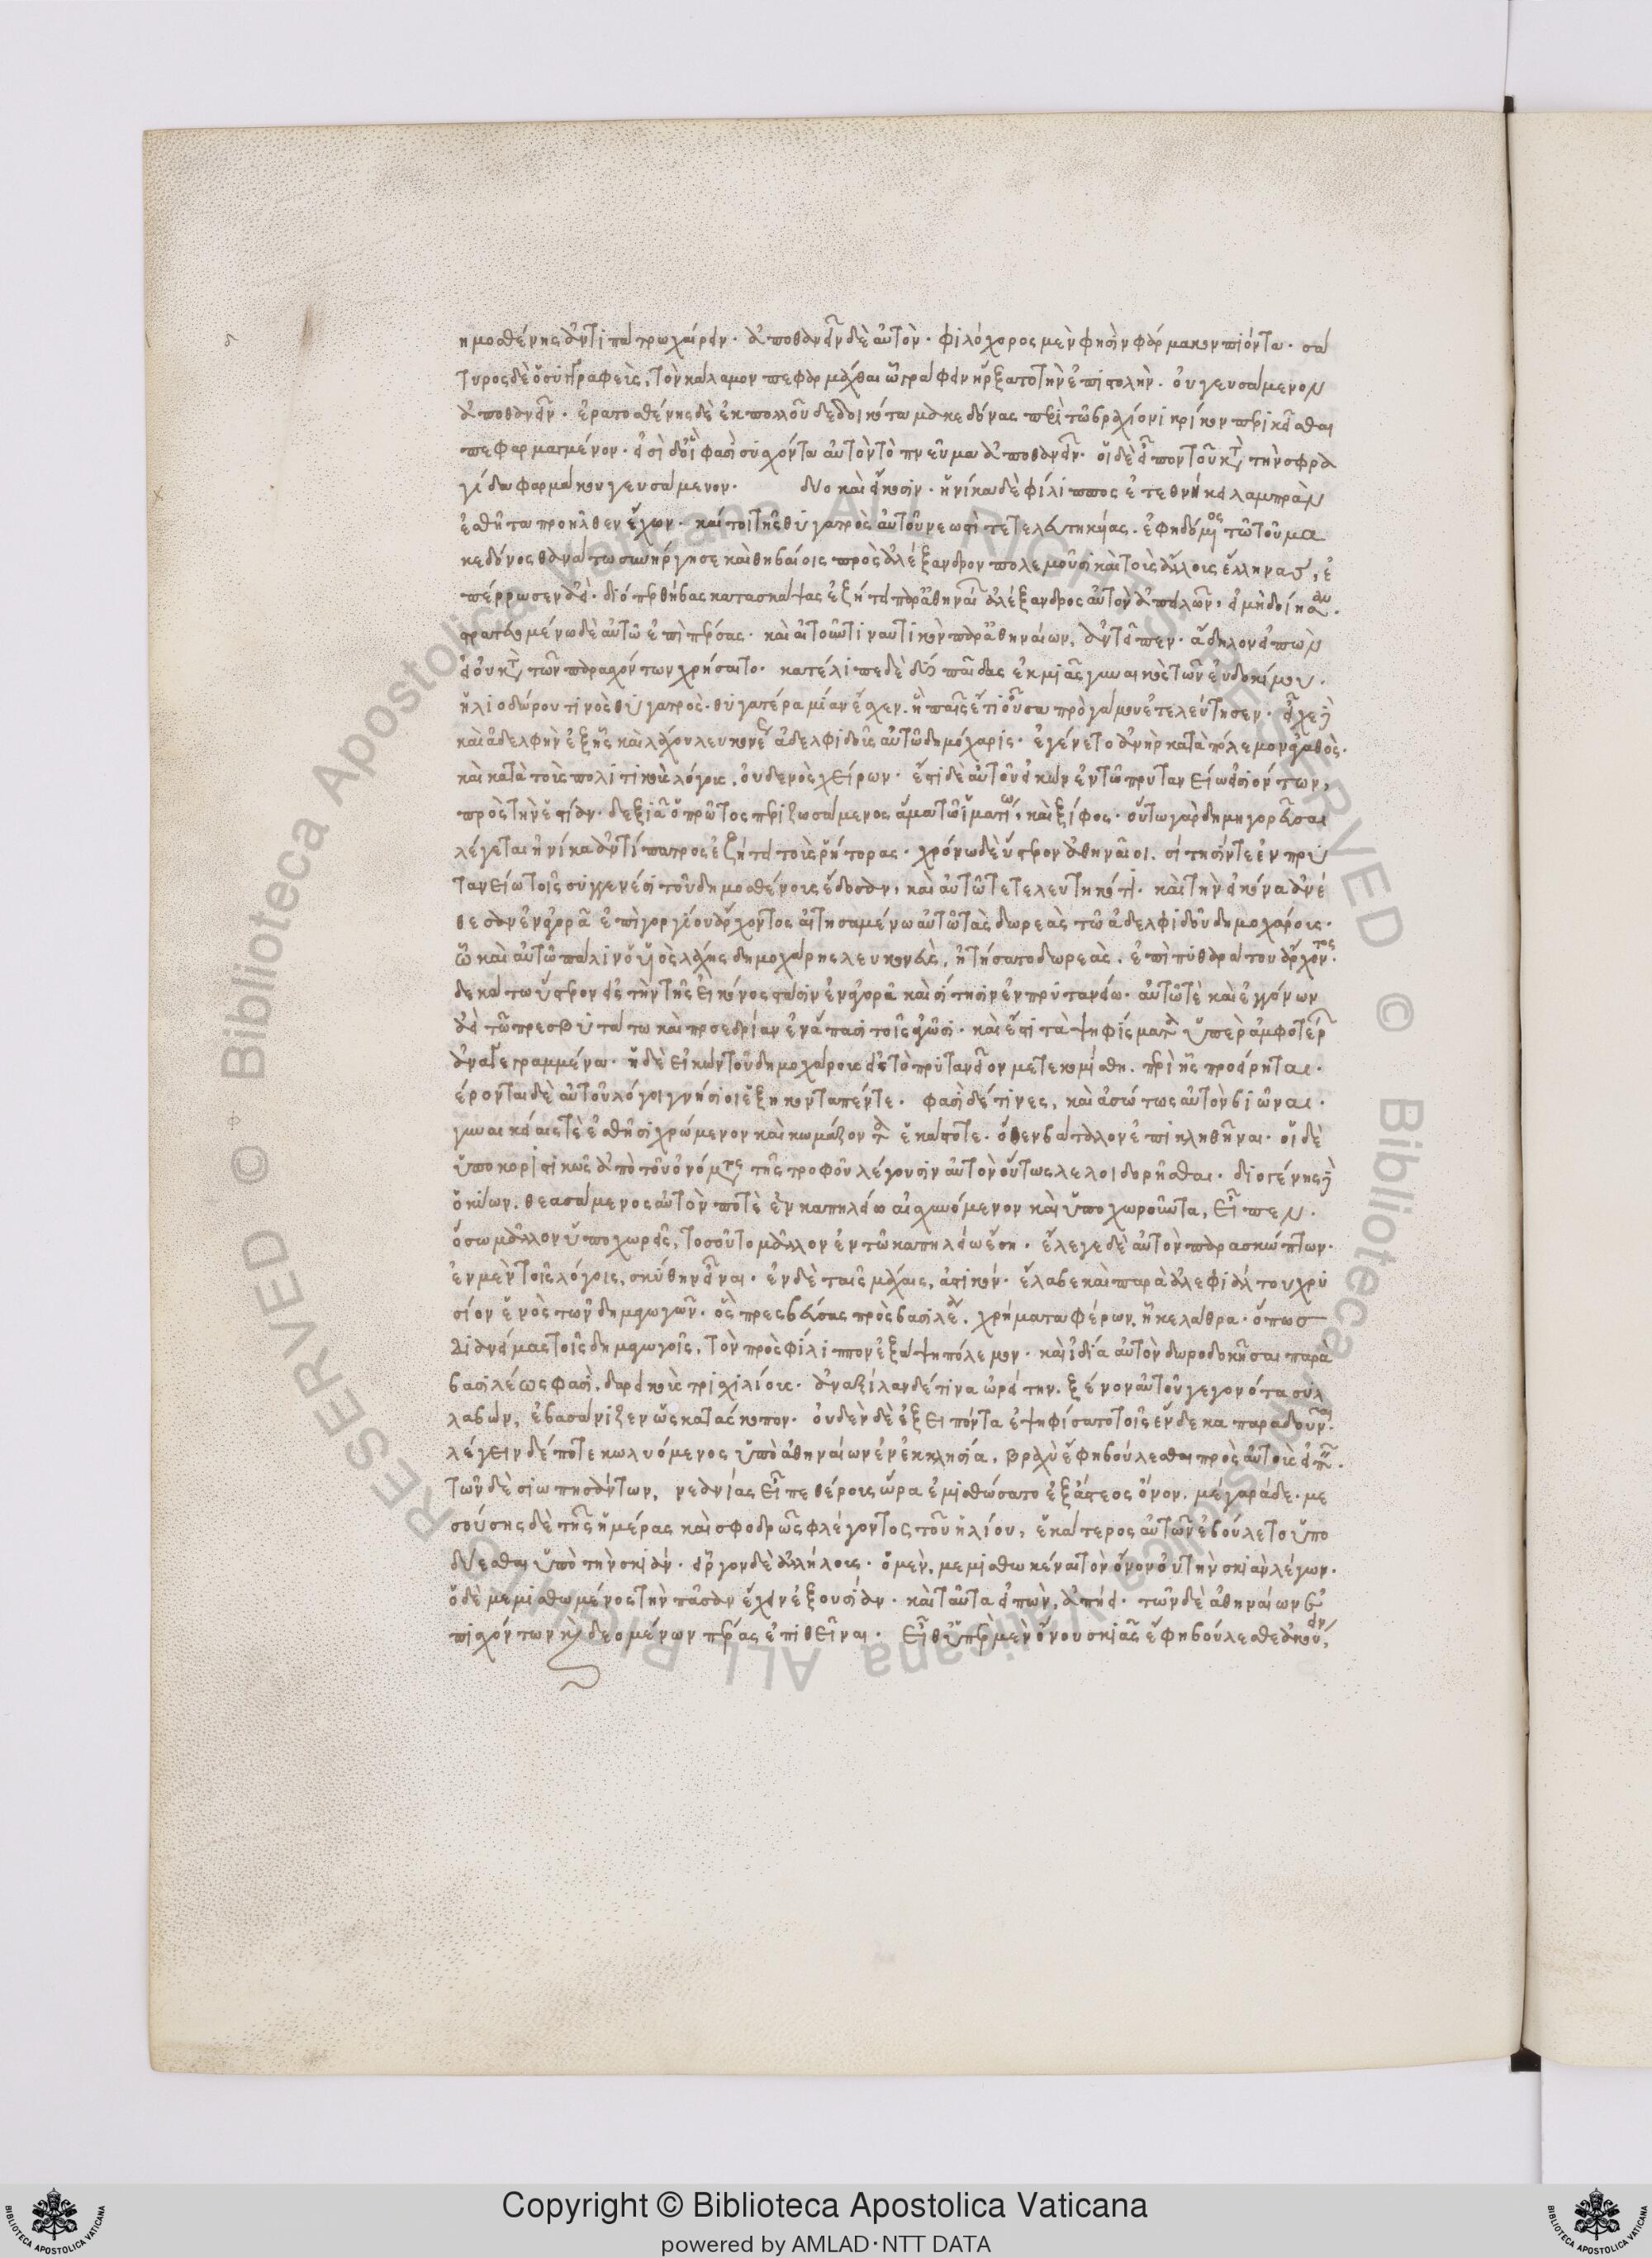 ημοσθένης ἀντιπάτρω χαίρειν. ἀποθανεῖν δὲ αὐτὸν. φιλόχορος μὲν φησὶν φάρμακον πιόντα. σά
τυρος δὲ ὁ συγγραφεὺς, τὸν κάλαμον πεφαρμάχθαι ᾧ γράφειν ἤρξατο τὴν ἐπιστολὴν. οὗ γευσάμενον
ἀποθανεῖν. ἐρατοσθένης δὲ ἐκ πολλοῦ δεδοικότα μακεδόνας περὶ τῶ βραχίονι κρίκον περικεῖσθαι
πεφαρμαγμένον. εἰσὶ δ οἳ φασὶ συσχόντα αὐτὸν τὸ πνεῦμα ἀποθανεῖν. οἱ δὲ εἶπον τοῦ κατὰ τὴν σφρα
γίδα φαρμάκου γευσάμενον. δύο καὶ εἴκοσιν. ἡνίκα δὲ φίλιππος ἐτεθνήκει λαμπρὰν
ἐσθῆτα προῆλθεν ἔχων. καίτοι τῆς θυγατρὸς αὐτοῦ νεωστὶ τετελευτηκυίας. ἐφηδόμενος τῶ τοῦ μα
κεδόνος θανάτω συνήργησε καὶ θηβαίοις πρὸς ἀλέξανδρον πολεμοῦσι καὶ τοὺς ἄλλους ἕλληνας, ἐ
πέρρωσεν ἀεὶ. διόπερ θήβας κατασκάψας ἐξήτει παρ ἀθηναίων ἀλέξανδρος αὐτὸν ἀπειλῶν, εἰ μὴ δοίησαν.
στρατευομένω δὲ αὐτῶ ἐπὶ πέρσας. καὶ αἰτοῦντι ναυτικὸν παρ ἀθηναίων, ἀντεῖπεν. ἄδηλον εἰπὼν
εἰ οὐ κατὰ τῶν παρασχόντων χρήσαιτο. κατέλιπε δὲ δύο παῖδας ἐκ μιᾶς γυναικὸς τῶν εὐδοκίμου.
ἡλιοδώρου τινὸς θυγατρὸς. θυγατέρα μίαν ἔσχεν. ἣ παῖς ἔτι οὖσα πρὸ γάμου ἐτελεύτησεν. εἶχε δὲ
καὶ ἀδελφὴν ἐξ ἧς καὶ λάχου λευκονέως ἀδελφιδοῦς αὐτῶ δημοχάρις. ἐγένετο ἀνὴρ κατὰ πόλεμον ἀγαθὸς.
καὶ κατὰ τοὺς πολιτικοὺς λόγους, οὐδενὸς χείρων. ἔστι δὲ αὐτοῦ εἰκὼν ἐν τῶ πρυτανείω εἰσιόντων,
πρὸς τὴν ἑστίαν. δεξιᾶ ὁ πρῶτος περιζωσάμενος ἅμα τῶ ἱματίω, καὶ ξίφος. οὕτω γὰρ δημηγορεῦσαι
λέγεται ἡνίκα ἀντίπατρος ἐξήτει τοὺς ῥήτορας. χρόνω δὲ ὕστερον ἀθηναῖοι. σίτησίν τε ἐν πρυ
τανείω τοῖς συγγενέσι τοῦ δημοσθένους ἔδοσαν, καὶ αὐτῶ τετελευτηκότι. καὶ τὴν εἰκόνα ἀνέ
θεσαν ἐν ἀγορᾶ ἐπὶ γοργίου ἄρχοντος αἰτησαμένω αὐτῶ τὰς δωρεὰς τῶ ἀδελφιδοῦ δημοχάρους.
ᾧ καὶ αὐτῶ πάλιν ὁ υἱὸς λάχης δημοχάρης λευκονεὺς, ἠτήσατο δωρεὰς. ἐπὶ πυθαράτου ἄρχοντος.
δεκάτω ὕστερον εἰς τὴν τῆς εἰκόνος στάσιν ἐν ἀγορᾶ καὶ σίτησιν ἐν πρυτανείω. αὐτῶ τὲ καὶ ἐγγόνων
ἀεὶ τῶ πρεσβυτάτω καὶ προεδρίαν ἐν ἅπασι τοῖς ἀγῶσι. καὶ ἔστι τὰ ψηφίσματα ὑπὲρ ἀμφοτέρων
ἀναγεγραμμένα. ἡ δὲ εἰκὼν τοῦ δημοχάρους εἰς τὸ πρυτανεῖον μετεκομίσθη. περὶ ἧς προείρηται.
έρονται δὲ αὐτοῦ λόγοι γνήσιοι ἑξήκοντα πέντε. φασὶ δέ τινες, καὶ ἀσώτως αὐτὸν βιῶναι.
γυναικείαις τὲ ἐσθῆσι χρώμενον καὶ κωμάζοντα ἑκάστοτε. ὅθεν βάταλον ἐπικληθῆναι. οἱ δὲ
ὑποκοριστικῶς ἀπὸ τοῦ ὀνόματος τῆς τροφοῦ λέγουσιν αὐτὸν οὕτως λελοιδορῆσθαι. διογένης δὲ
ὁ κύων. θεασάμενος αὐτὸν ποτὲ ἐν καπηλείω αἰσχυνόμενον καὶ ὑποχωροῦντα, εἶπεν.
ὅσω μᾶλλον ὑποχωρεῖς, τοσοῦτο μᾶλλον ἐν τῶ καπηλείω ἔση. ἔλεγε δὲ αὐτὸν παρασκώπτων.
ἐν μὲν τοῖς λόγοις, σκύθην εἶναι. ἐν δὲ ταῖς μάχαις, ἀστικόν. ἔλαβε καὶ παρὰ ἀλεφιάλτου χρυ
σίον ἑνὸς τῶν δημαγωγῶν. ὃς πρεσβεύσας πρὸς βασιλέα. χρήματα φέρων, ἧκε λάθρα. ὅπως
διανείμας τοῖς δημαγωγοῖς, τὸν πρὸς φίλιππον ἐξάψη πόλεμον. καὶ ἰδία αὐτὸν δωροδοκῆσαι παρὰ
βασιλέως φασὶ, δαρεικοὺς τρισχιλίους. ἀναξίλαν δέ τινα ὠρείτην. ξένον αὐτοῦ γεγονότα συλ
λαβὼν, ἐβασάνιζεν ὡς κατάσκοπον. οὐδὲν δὲ ἐξειπόντα ἐψηφίσατο τοῖς ἕνδεκα παραδοῦναι.
λέγειν δέ ποτε κωλυόμενος ὑπὸ ἀθηναίων ἐν ἐκκλησία, βραχὺ ἔφη βούλεσθαι πρὸς αὐτοὺς εἰπεῖν.
τῶν δὲ σιωπησάντων, νεανίας εἶπε θέρους ὥρα ἐμισθώσατο ἐξ ἄστεος ὄνον. μέγαράδε. με
σούσης δὲ τῆς ἡμέρας καὶ σφοδρῶς φλέγοντος τοῦ ἡλίου, ἑκάτερος αὐτῶν ἐβούλετο ὑπο
δύεσθαι ὑπὸ τὴν σκιάν. εἶργον δὲ ἀλλήλους. ὁ μὲν, μεμισθωκέναι τὸν ὄνον οὐ τὴν σκιὰν λέγων.
ὁ δὲ μεμισθωμένος τὴν πᾶσαν ἔχειν ἐξουσίαν. καὶ ταῦτα εἰπὼν, ἀπήει. τῶν δὲ ἀθηναίων ἐ
πισχόντων καὶ δεομένων πέρας ἐπιθεῖναι. εἶθ ὑπὲρ μὲν ὄνου σκιᾶς ἔφη βούλεσθε ἀκούειν,